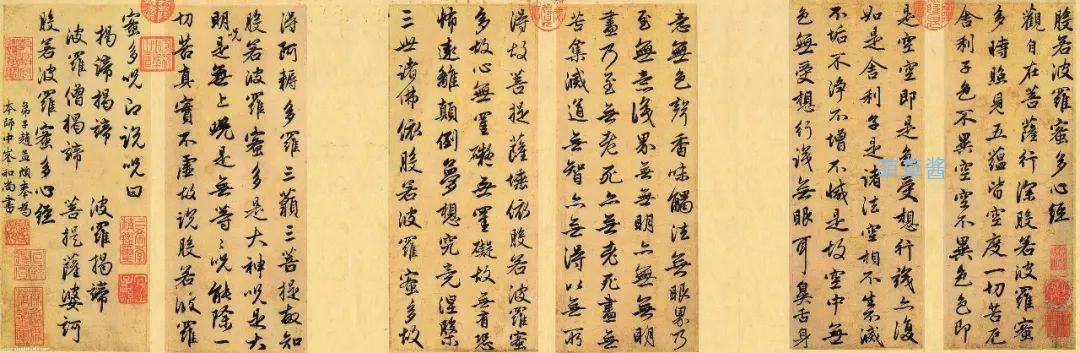 般若波羅蜜多心經
觀自在菩薩行深般若波羅蜜
多時照見五蘊皆空度一切苦厄
舍利子色不異空空不異色色即
是空空即是色受想行識亦復
如是舍利子是諸法空相不生不滅
不垢不淨不增不減是故空中無
色無受想行識無眼耳鼻舌身
意無色聲香味觸法無眼界乃
至無意識界無無明亦無無明
盡乃至無老死亦無老死盡無
苦集滅道無智亦無得以無所
得故菩提薩埵依般若波羅蜜
多故心無罣礙無罣礙故無有恐
怖遠離顛倒夢想究竟涅槃
三世諸佛依般若波羅蜜多故
得阿耨多羅三藐三菩提故知
般若波羅蜜多是大神咒是大
明咒是無上咒是無等〻咒能除一
切苦真實不虛故說般若波羅
蜜多咒即說咒曰
揭諦揭諦 波羅揭諦
波羅僧揭諦 菩提薩婆訶
般若波羅蜜多心經
弟子趙孟頫奉為
本師中峯和尚書
萌草酱